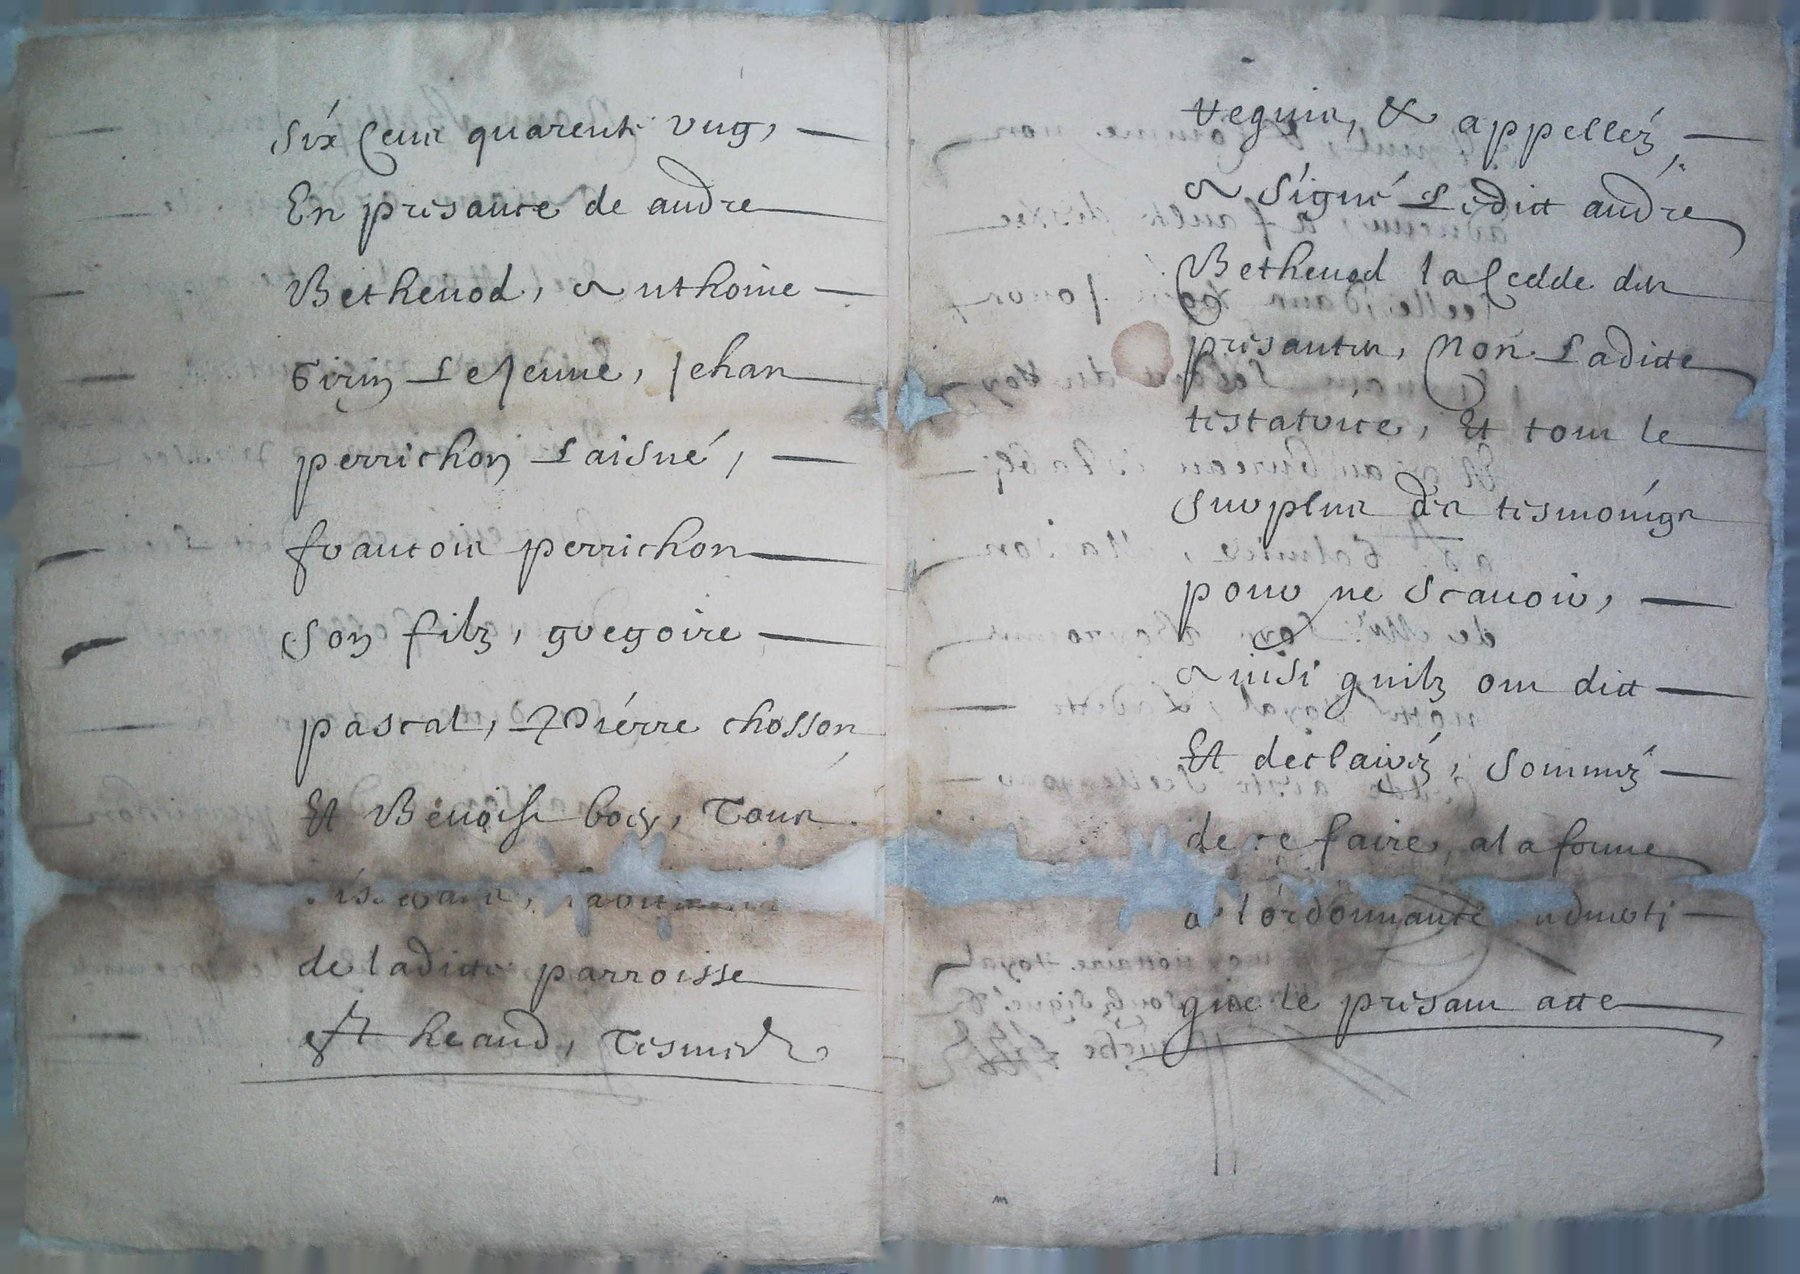 six Cens quarente ung,
En presance de andre
Bethenod, Anthoine
Girin Le Jeune, Jehan
perrichon Laisné,
francois perrichon
son filz, gregoire
pascal, Pierre chosson
Et Benoist boy, Tous
de laditte parroisse
st heand, Tesmoins
requis, & appellez,
A signé Ledict andre
Bethenod la Cedde des
presantes, Non Laditte
testatrice, Et tous le
surplus des tesmoings
pour ne scavoir,
Ainsi quilz ont dict
Et declairé, sommés
de ce faire, a la forme
a lordonnance
que le presant acte